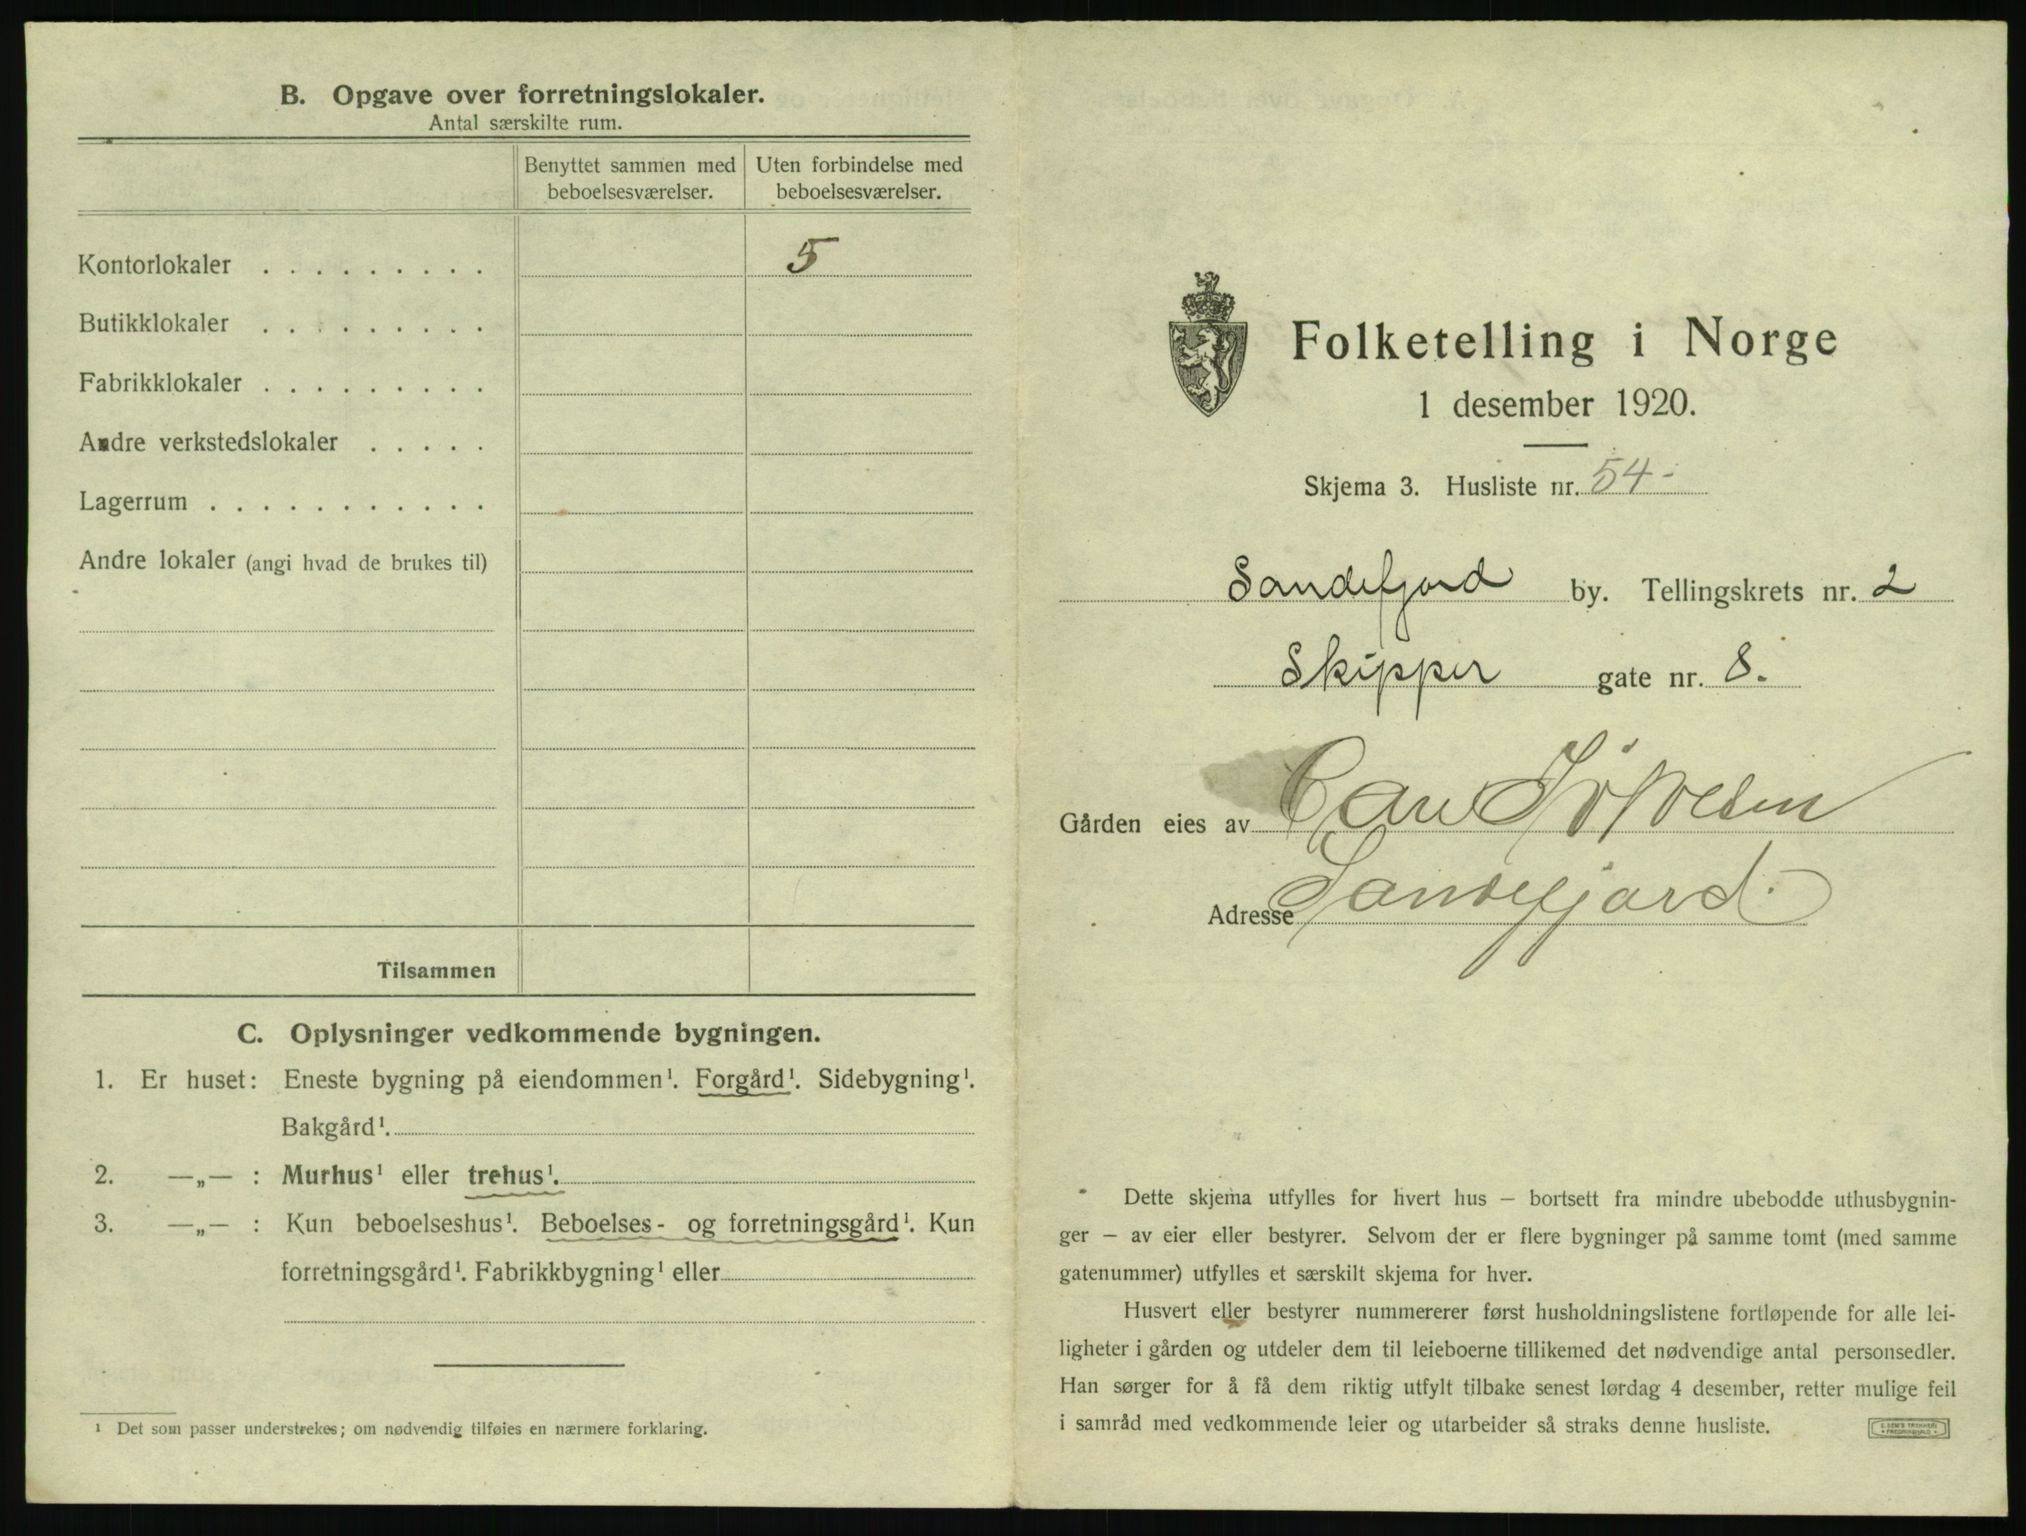 B. Opgave over forretningslokaler.
Antal særskilte rum.
Benyttet sammen med beboelsesværelser.
Uten forbindelse med beboelsesværelser.
Kontorlokaler . . . . . . . . . 5
Butikklokaler . . . . . . . . .
Fabrikklokaler . . . . . . . . .
Andre verkstedslokaler . . . . .
Lagerrum . . . . . . . . . . .
Andre lokaler (angi hvad de brukes til)
Tilsammen
C. Oplysninger vedkommende bygningen.
1. Er huset: Eneste bygning på eiendommen¹. Forgård¹. Sidebygning¹.
Bakgård¹.
2. —„— : Murhus¹ eller trehus¹.
3. —„— : Kun beboelseshus¹. Beboelses- og forretningsgård¹. Kun
forretningsgård¹. Fabrikkbygning¹ eller
¹ Det som passer understrekes; om nødvendig tilføies en nærmere forklaring.
Folketelling i Norge
1 desember 1920.
Skjema 3. Husliste nr. 54-
Sandefjord by. Tellingskrets nr. 2
Skipper gate nr. 8.
Gården eies av Carl
Adresse Sandefjord.
Dette skjema utfylles for hvert hus — bortsett fra mindre ubebodde uthusbygnin-
ger — av eier eller bestyrer. Selvom der er flere bygninger på samme tomt (med samme
gatenummer) utfylles et særskilt skjema for hver.
Husvert eller bestyrer nummererer først husholdningslistene fortløpende for alle lei-
ligheter i gården og utdeler dem til leieboerne tillikemed det nødvendige antal personsedler.
Han sørger for å få dem riktig utfylt tilbake senest lørdag 4 desember, retter mulige feil
i samråd med vedkommende leier og utarbeider så straks denne husliste.